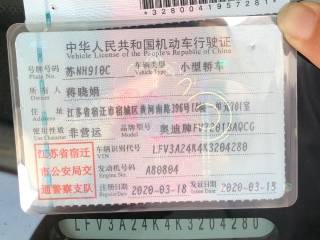 *328004195721*
中华人民共和国机动车行驶证
Vehicle License of the People's Republic of China
号牌号码 苏NH910C 车辆类型 小型轿车
Plate No. Vehicle Type
所有人 蒋晓娟
Owner
住址 江苏省宿迁市宿城区黄河南路396号
Address
使用性质 非营运 品牌型号 奥迪牌
Use Character Model
江苏省宿迁
市公安局交
通警察支队
车辆识别代号 LFV3A24K4K3204280
VIN
发动机号码 A80804
Engine No.
注册日期 2020-03-18 发证日期 2020-03-18
Register Date Issue Date
LFV3A24K4K3204280